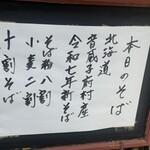 本日のそば
北海道
音威子府村産
令和七年新そば
そば粉八割
小麦二割
十割そば